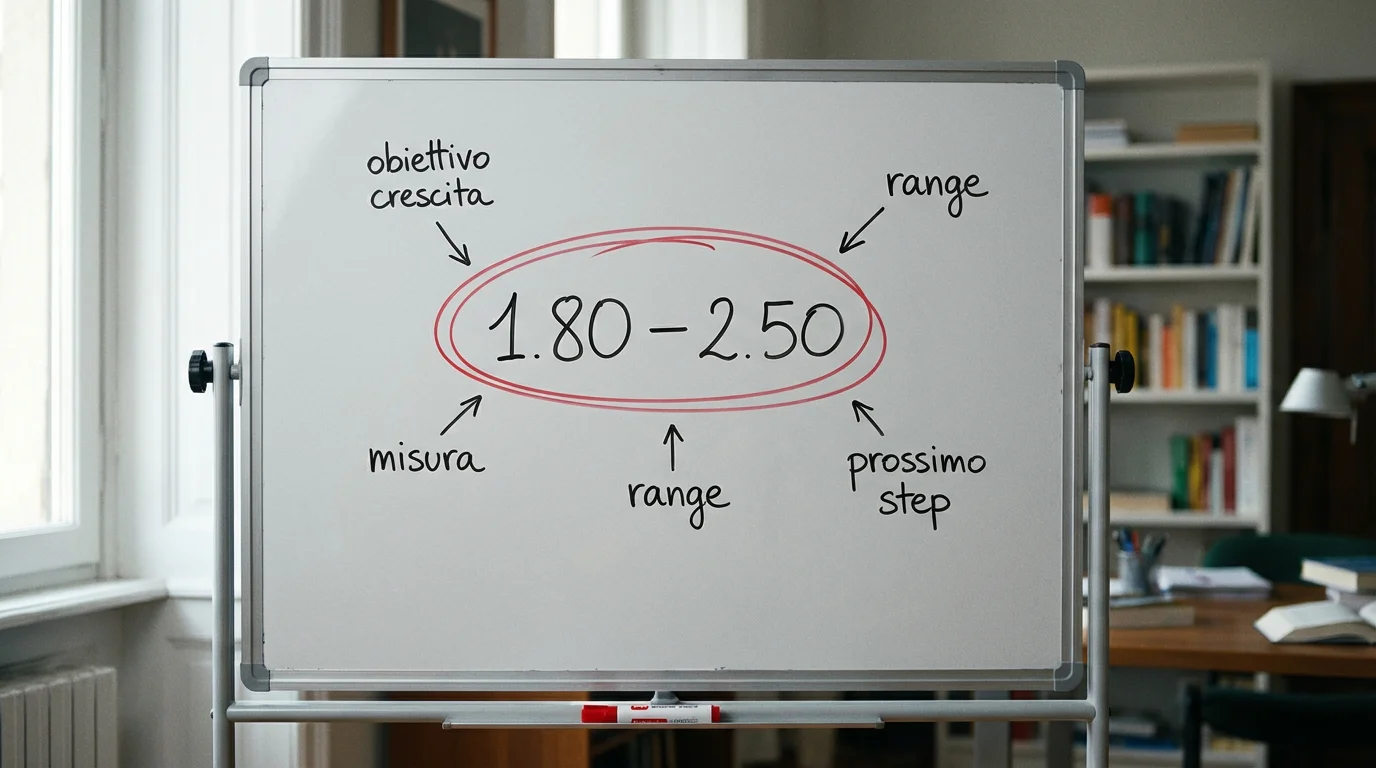 obiettivo
crescita
range
1.80 – 2.50
misura
range
prossimo
step